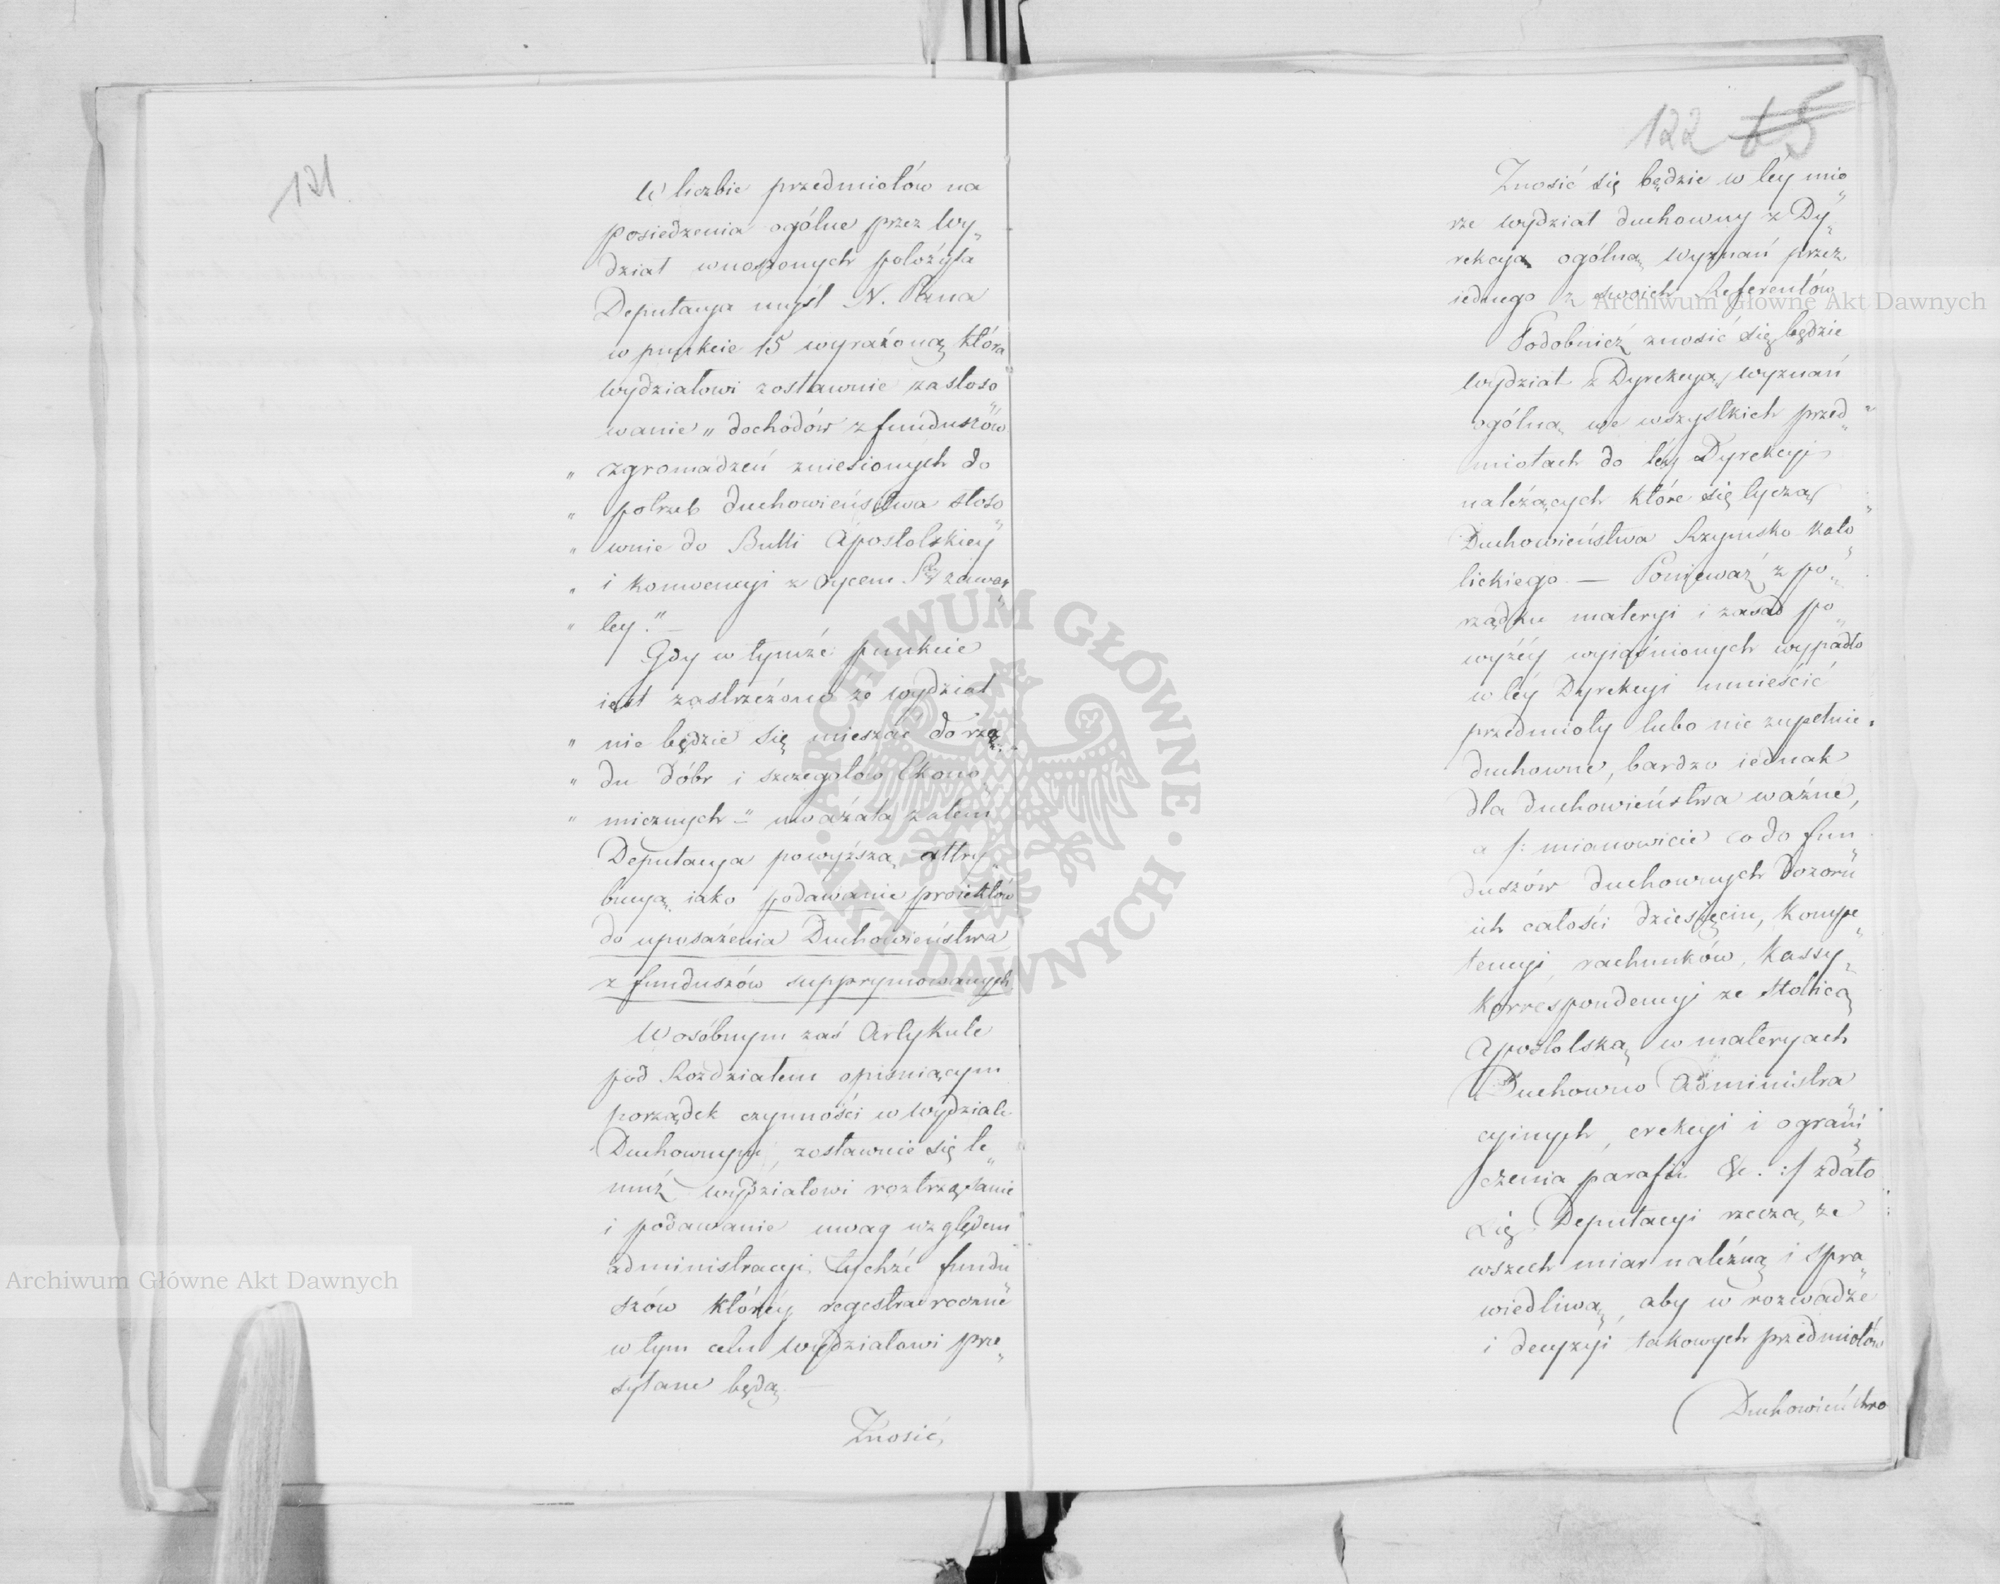 121.
W liczbie przedmiotów na
posiedzenia ogólne przez Wy„
dział wnoszonych położyła
Deputacya myśl N. Pana
w punkcie 15 wyrażoną która
wydziałowi zostawuie zastoso„
wanie „ dochodów z funduszów
„ zgromadzeń zniesionych do
„ potrzeb duchowieństwa stoso„
„ wnie do Bulli Apostolskiey
„ i konwencyi z Oycem Stym zawar„
„ tey." —
Gdy w tymże punkcie
iest zastrzeżono że wydział
„ nie będzie się mieszać do rzą„
„ du dóbr i szczegółów Ekono„
„ micznych —" uważała zatem
Deputacya powyższą attry„
bucyą iako podawanie proiektów
do uposażenia Duchowieństwa
z funduszów supprymowanych
W osóbnym zaś Artykule
pod Rozdziałem opisuiącym
porządek czynności w wydziale
Duchownym, zostawuie się te„
muż wydziałowi roztrząsanie
i podawanie uwag względem
administracyi tychże fundu„
szów którey regestra roczne
w tym celu wydziałowi prze„
syłane będą —
Znosić,
122 65
Znosić się będzie w téy mie„
rze wydział duchowny z Dy„
rekcyą ogólną Wyznań przez
iednego z swoich Referentów
Podobnież znosić się będzie
wydział z Dyrekcyą wyznań
ogólną we wszystkich przed„
miotach do téy Dyrekcyi
należących które się tyczą
Duchowieństwa Rzymsko Kato„
lickiego — Ponieważ z po„
rządku materyi i zasad po„
wyżéy wyiaśnionych wypadło
w téy Dyrekcyi umieścić
przedmioty lubo nie zupełnie
duchowne, bardzo iednak
dla duchowieństwa ważne,
a /: mianowicie co do fun„
duszów duchownych dozoru
ich całości dziesięcin, kompe„
tencyi, rachunków, Kassy,
korrespondencyi ze stolicą
Apostolską w materyach
Duchowno Administra„
cyinych, erekcyi i ograni„
czenia parafii &c. :/ zdało
się Deputacyi rzeczą, ze
wszech miar należną i spra„
wiedliwą, aby w rozwadze
i decyzyi takowych przedmiotów
Duchowieństwo
ARCHIWUM GŁÓWNE · AKT DAWNYCH ·
Archiwum Główne Akt Dawnych
Archiwum Główne Akt Dawnych